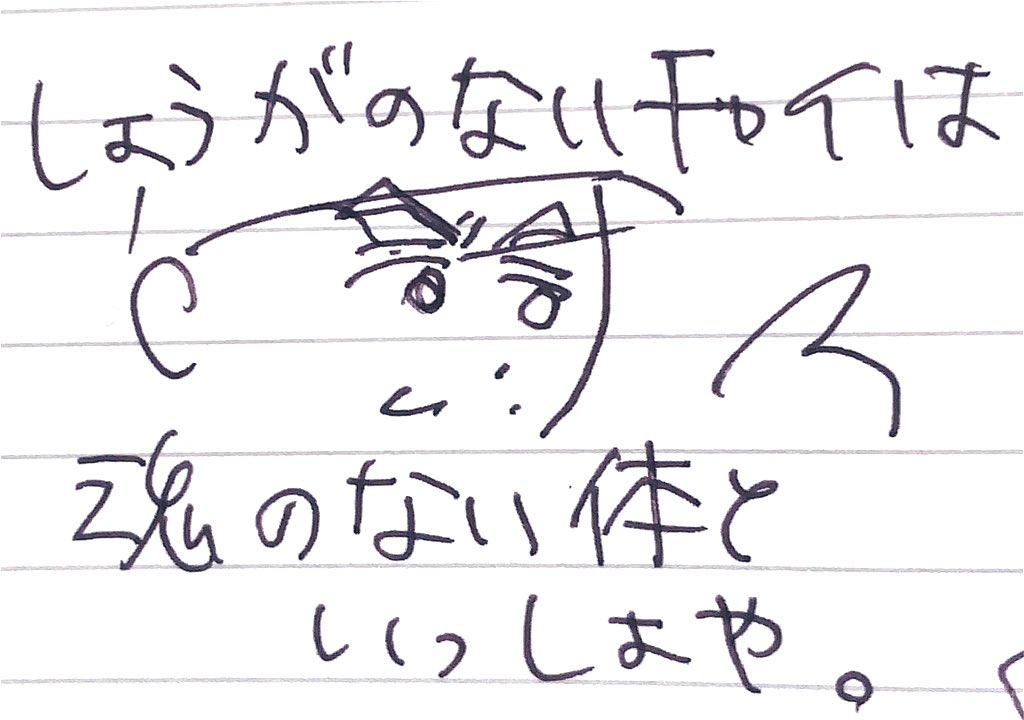 しょうがのない は
魂のない体と
いっしょや。